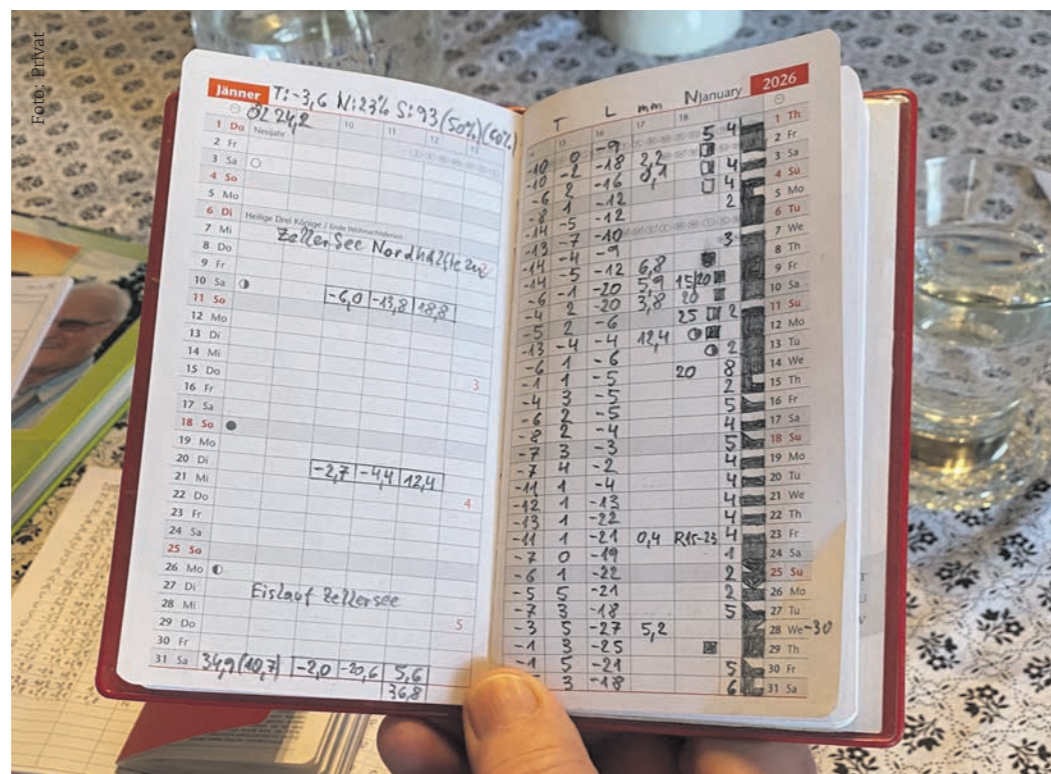 Foto: Privat
Jänner T:-3,6 N:23% S:93 (50%)(60%)
ÖZ 24,2
10 11 12 13
1 Do Neujahr
2 Fr
3 Sa
4 So
5 Mo
6 Di Heilige Drei Könige / Ende Weihnachtsferien
7 Mi Zellersee Nordhälfte zu
8 Do
9 Fr
10 Sa
11 So -6,0 -13,8 18,8
12 Mo
13 Di
14 Mi
15 Do 3
16 Fr
17 Sa
18 So
19 Mo
20 Di
21 Mi -2,7 -4,4 12,4
22 Do 4
23 Fr
24 Sa
25 So
26 Mo
27 Di Eislauf Zellersee
28 Mi
29 Do 5
30 Fr
31 Sa 34,9 (10,7) -2,0 -20,6 5,6
36,8
T L mm N January 2026
14 15 16 17 18
-10 0 -9 5 4 1 Th
-10 -2 -18 2,2 2 Fr
-6 2 -16 0,1 4 3 Sa
-8 1 -12 4 4 Su
-14 -5 -12 2 5 Mo
-13 -7 -10 6 Tu
-14 -4 -9 3 7 We
-14 -5 -12 6,8 8 Th
-6 -1 -20 5,9 15/20 9 Fr
-4 2 -20 3,8 20 10 Sa
-5 2 -6 25 2 11 Su
-13 -4 -4 12,4 12 Mo
-6 1 -6 2 13 Tu
-1 1 -5 20 8 14 We
-4 3 -5 2 15 Th
-6 2 -5 5 16 Fr
-8 2 -4 4 17 Sa
-7 3 -3 5 18 Su
-7 4 -2 4 19 Mo
-11 1 -4 4 20 Tu
-12 1 -13 4 21 We
-13 1 -22 4 22 Th
-11 1 -21 0,4 R15-23 4 23 Fr
-7 0 -19 1 24 Sa
-6 1 -22 2 25 Su
-5 5 -21 2 26 Mo
-7 3 -18 5 27 Tu
-3 5 -27 5,2 28 We -30
-1 3 -25 29 Th
-1 5 -21 5 30 Fr
3 -18 6 31 Sa